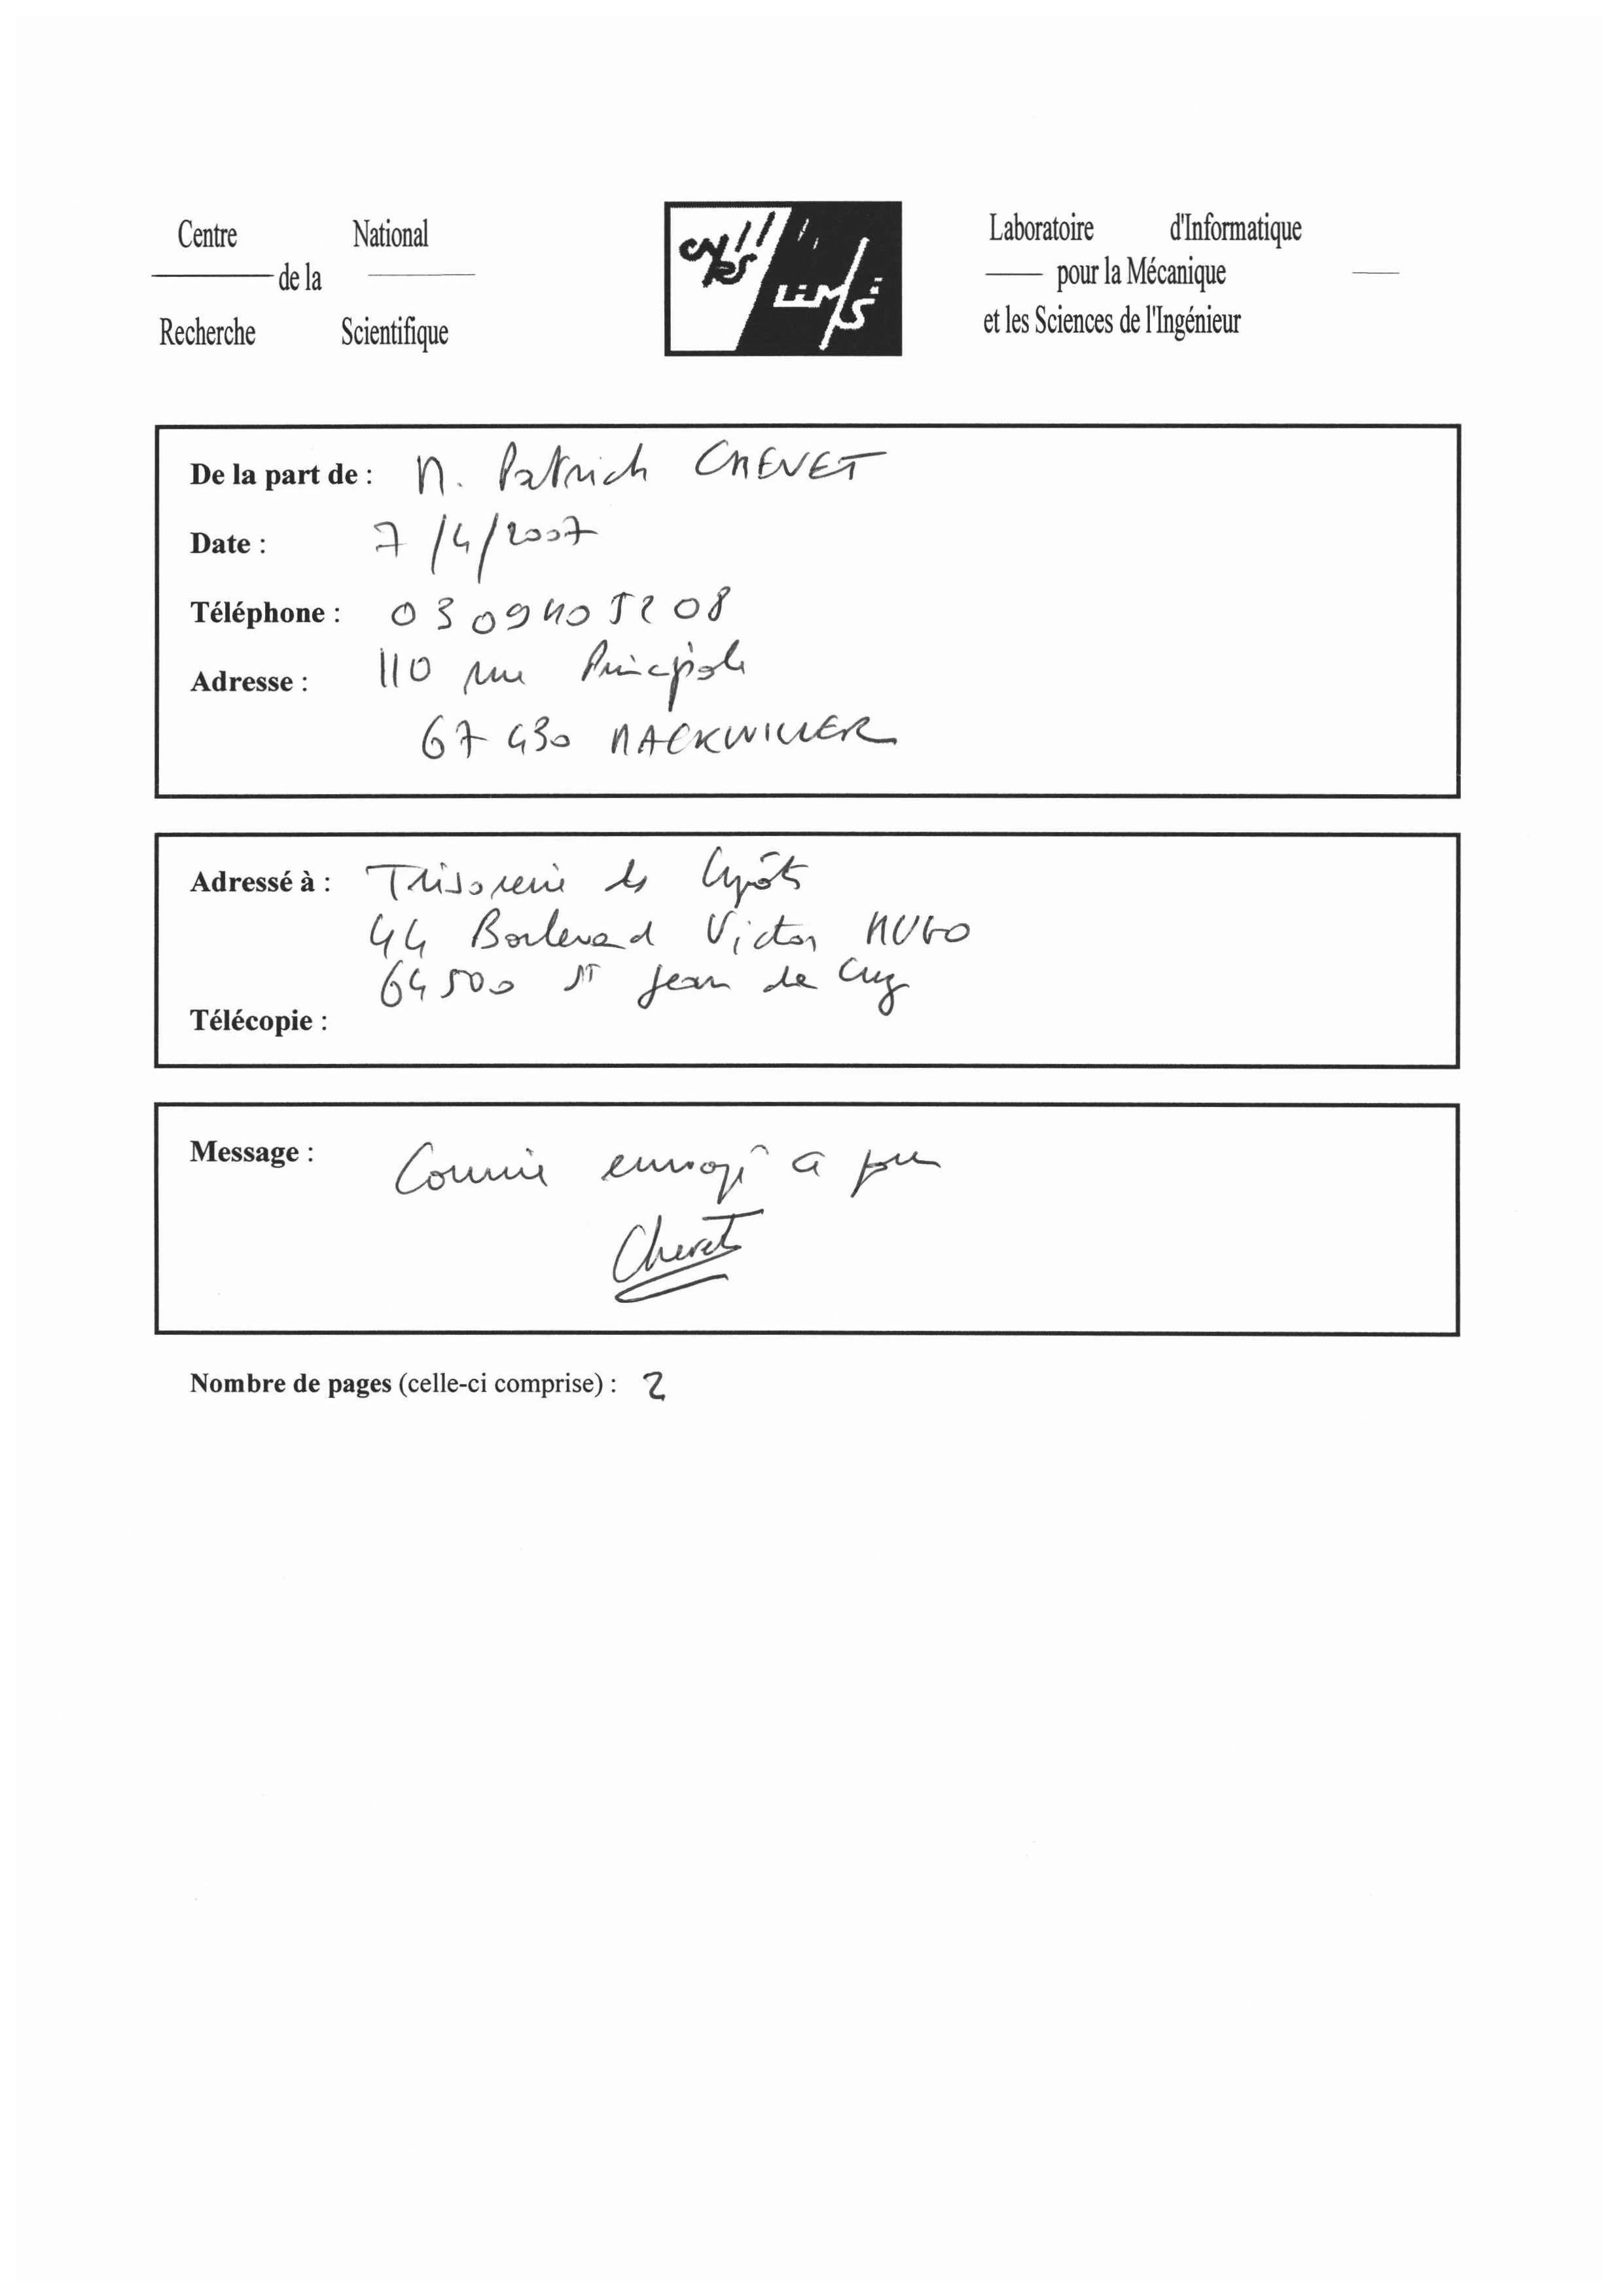 Centre National
de la
Recherche Scientifique
CNRS
LIMSI
Laboratoire d'Informatique
pour la Mécanique
et les Sciences de l'Ingénieur
De la part de : M. Patrick CHEVET
Date : 7/4/2007
Téléphone : 0309405208
Adresse : 110 rue Principale
67430 MACKWILLER
Adressé à : Trésorerie des Impôts
44 Boulevard Victor HUGO
64500 ST Jean de Luz
Télécopie :
Message : Courrier envoyé à
Chevet
Nombre de pages (celle-ci comprise) : 2